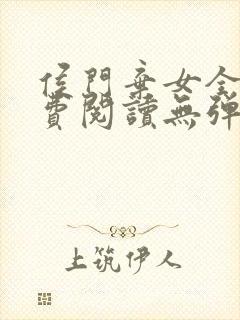 侯門棄女全
費閱讀無彈
上筑伊人